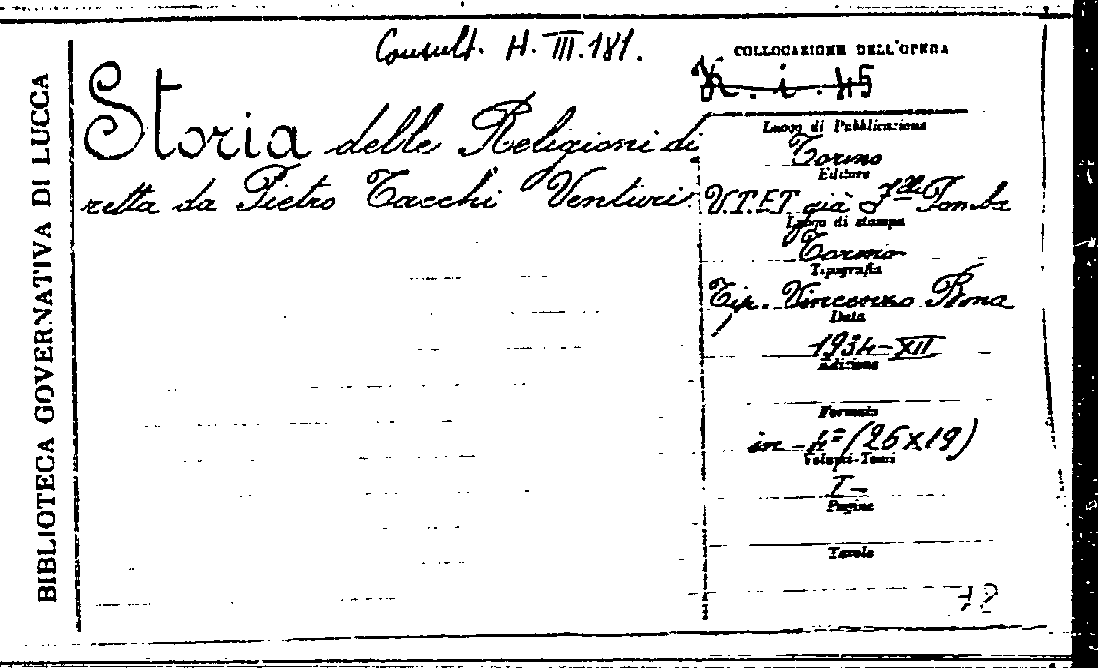 BIBLIOTECA GOVERNATIVA DI LUCCA
Consult. H. III. 181.
Storia delle Religioni di
retta da Pietro Tacchi Venturi
COLLOCAZIONE DELL'OPERA
K. i. 45
Luogo di Pubblicazione
Torino
Editore
V.T.E.T già F.lli Pomba
Luogo di stampa
Torino
Tipografia
Tip. Vincenzo Bona
Data
1934-XII
Edizione
Formato
in-4º (26x19)
Volumi-Tomi
I-
Pagine
Tavole